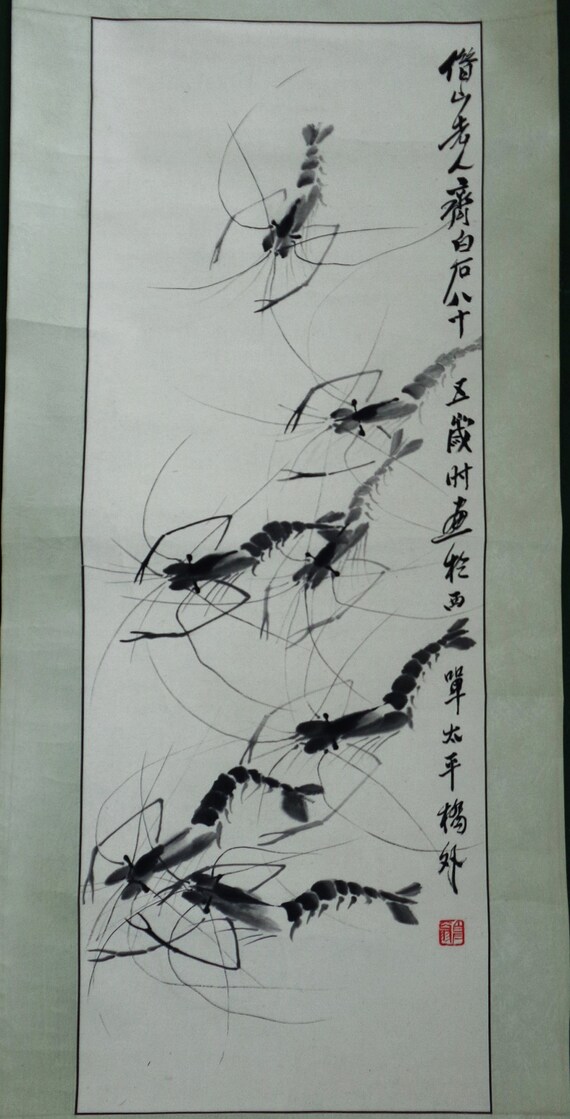 借山老人齊白石八十五歲时画於西單太平橋外